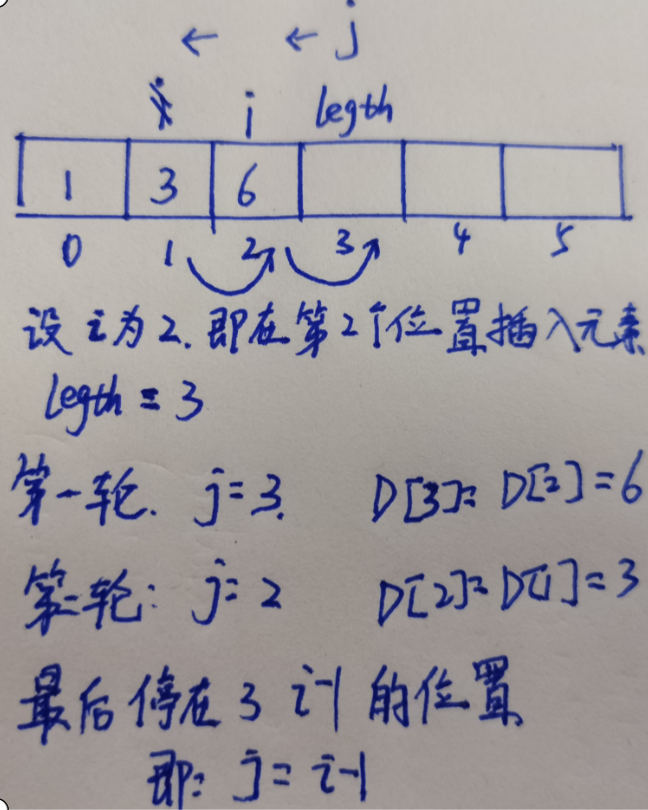 ← ← j
i j legth
1 3 6
0 1 2 3 4 5
设i为2.即在第2个位置插入元素
legth = 3
第一轮. j=3. D[3]= D[2]=6
第二轮: j=2 D[2]=D[1]=3
最后停在3 i-1的位置
即: j= i-1